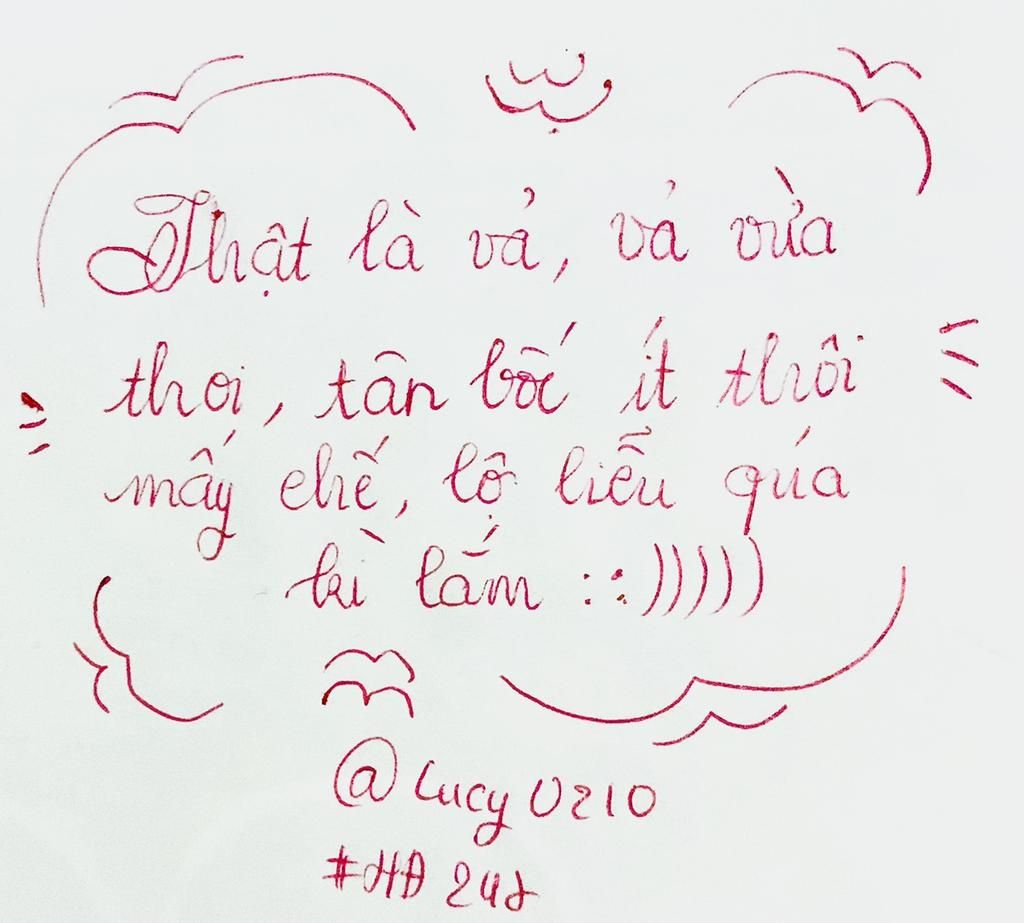 Thật là vả, vả vừa
thoi, tân bốc ít thôi
mấy chế, lộ liễu qúa
kì lắm ::)))))
@Lucy 0210
#HĐ 247